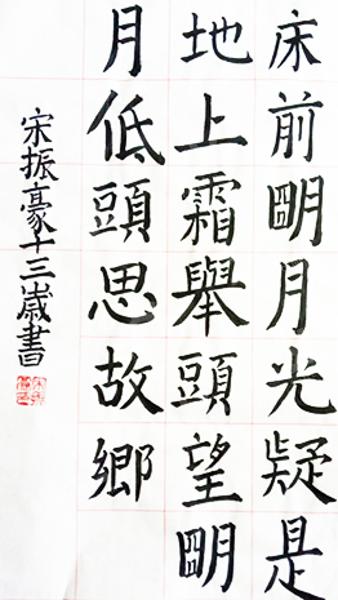 床前明月光疑是
地上霜舉頭望明
月低頭思故鄉
宋振豪十三歲書